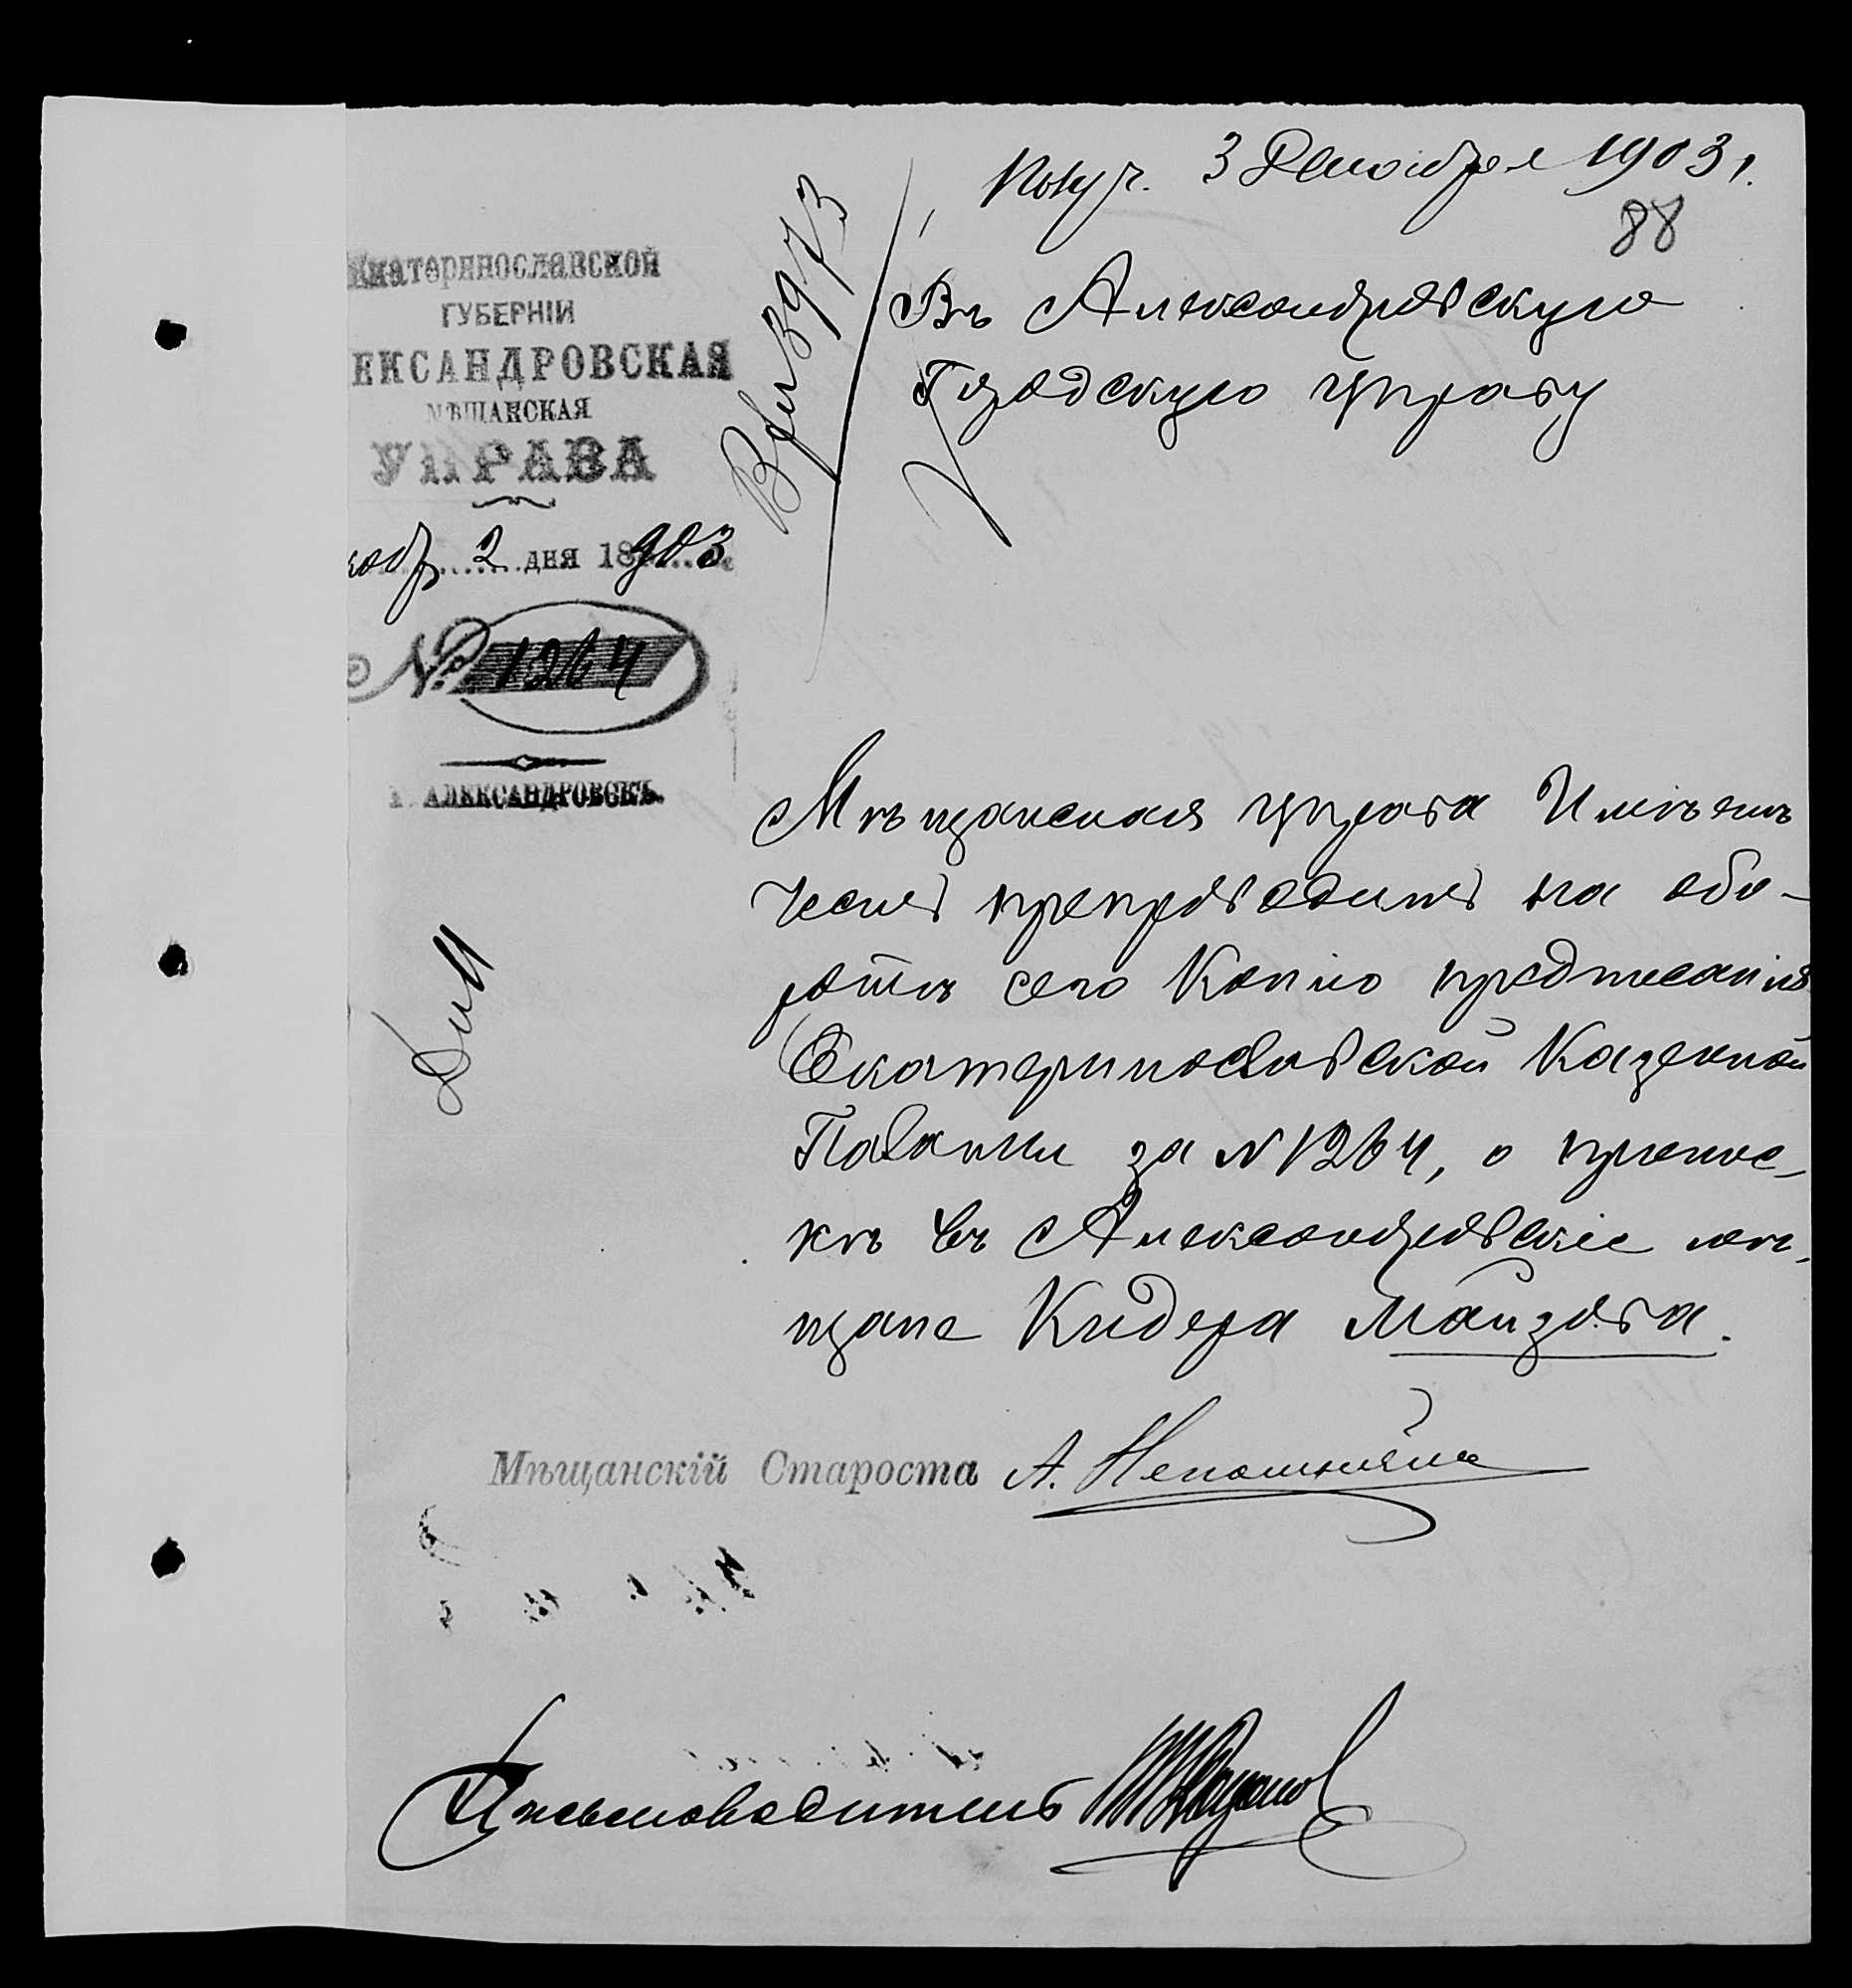 Получ. 3 Декабря 1903 г.
88
Екатеринославской
ГУБЕРНІИ
ЕКСАНДРОВСКАЯ
МѢЩАНСКАЯ
УПРАВА
кабр 2 дня 18903 г.
№ 1264
Г. АЛЕКСАНДРОВСКЪ.
3973
Въ Александровскую
Городскую Управу
Мѣщанская управа Имѣетъ
честь препроводить на обо-
ротѣ сего Копію предписанія
Екатеринославской Казенной
Палаты за № 1264, о припис-
кѣ въ Александровскіе мѣ-
щане Кидера Майзова.
Мѣщанскій Староста А. Непомнящий
Письмоводитель